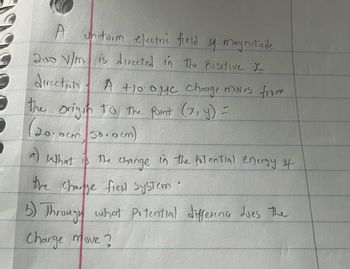 A uniform electric field of magnitude
250 V/m is directed in the positive x
direction. A +10.0μC charge moves from
the origin to the point (x, y) =
(20.0cm, 50.0cm)
a) What is the change in the potential energy of
the charge field system.
b) Through what potential difference does the
charge move?